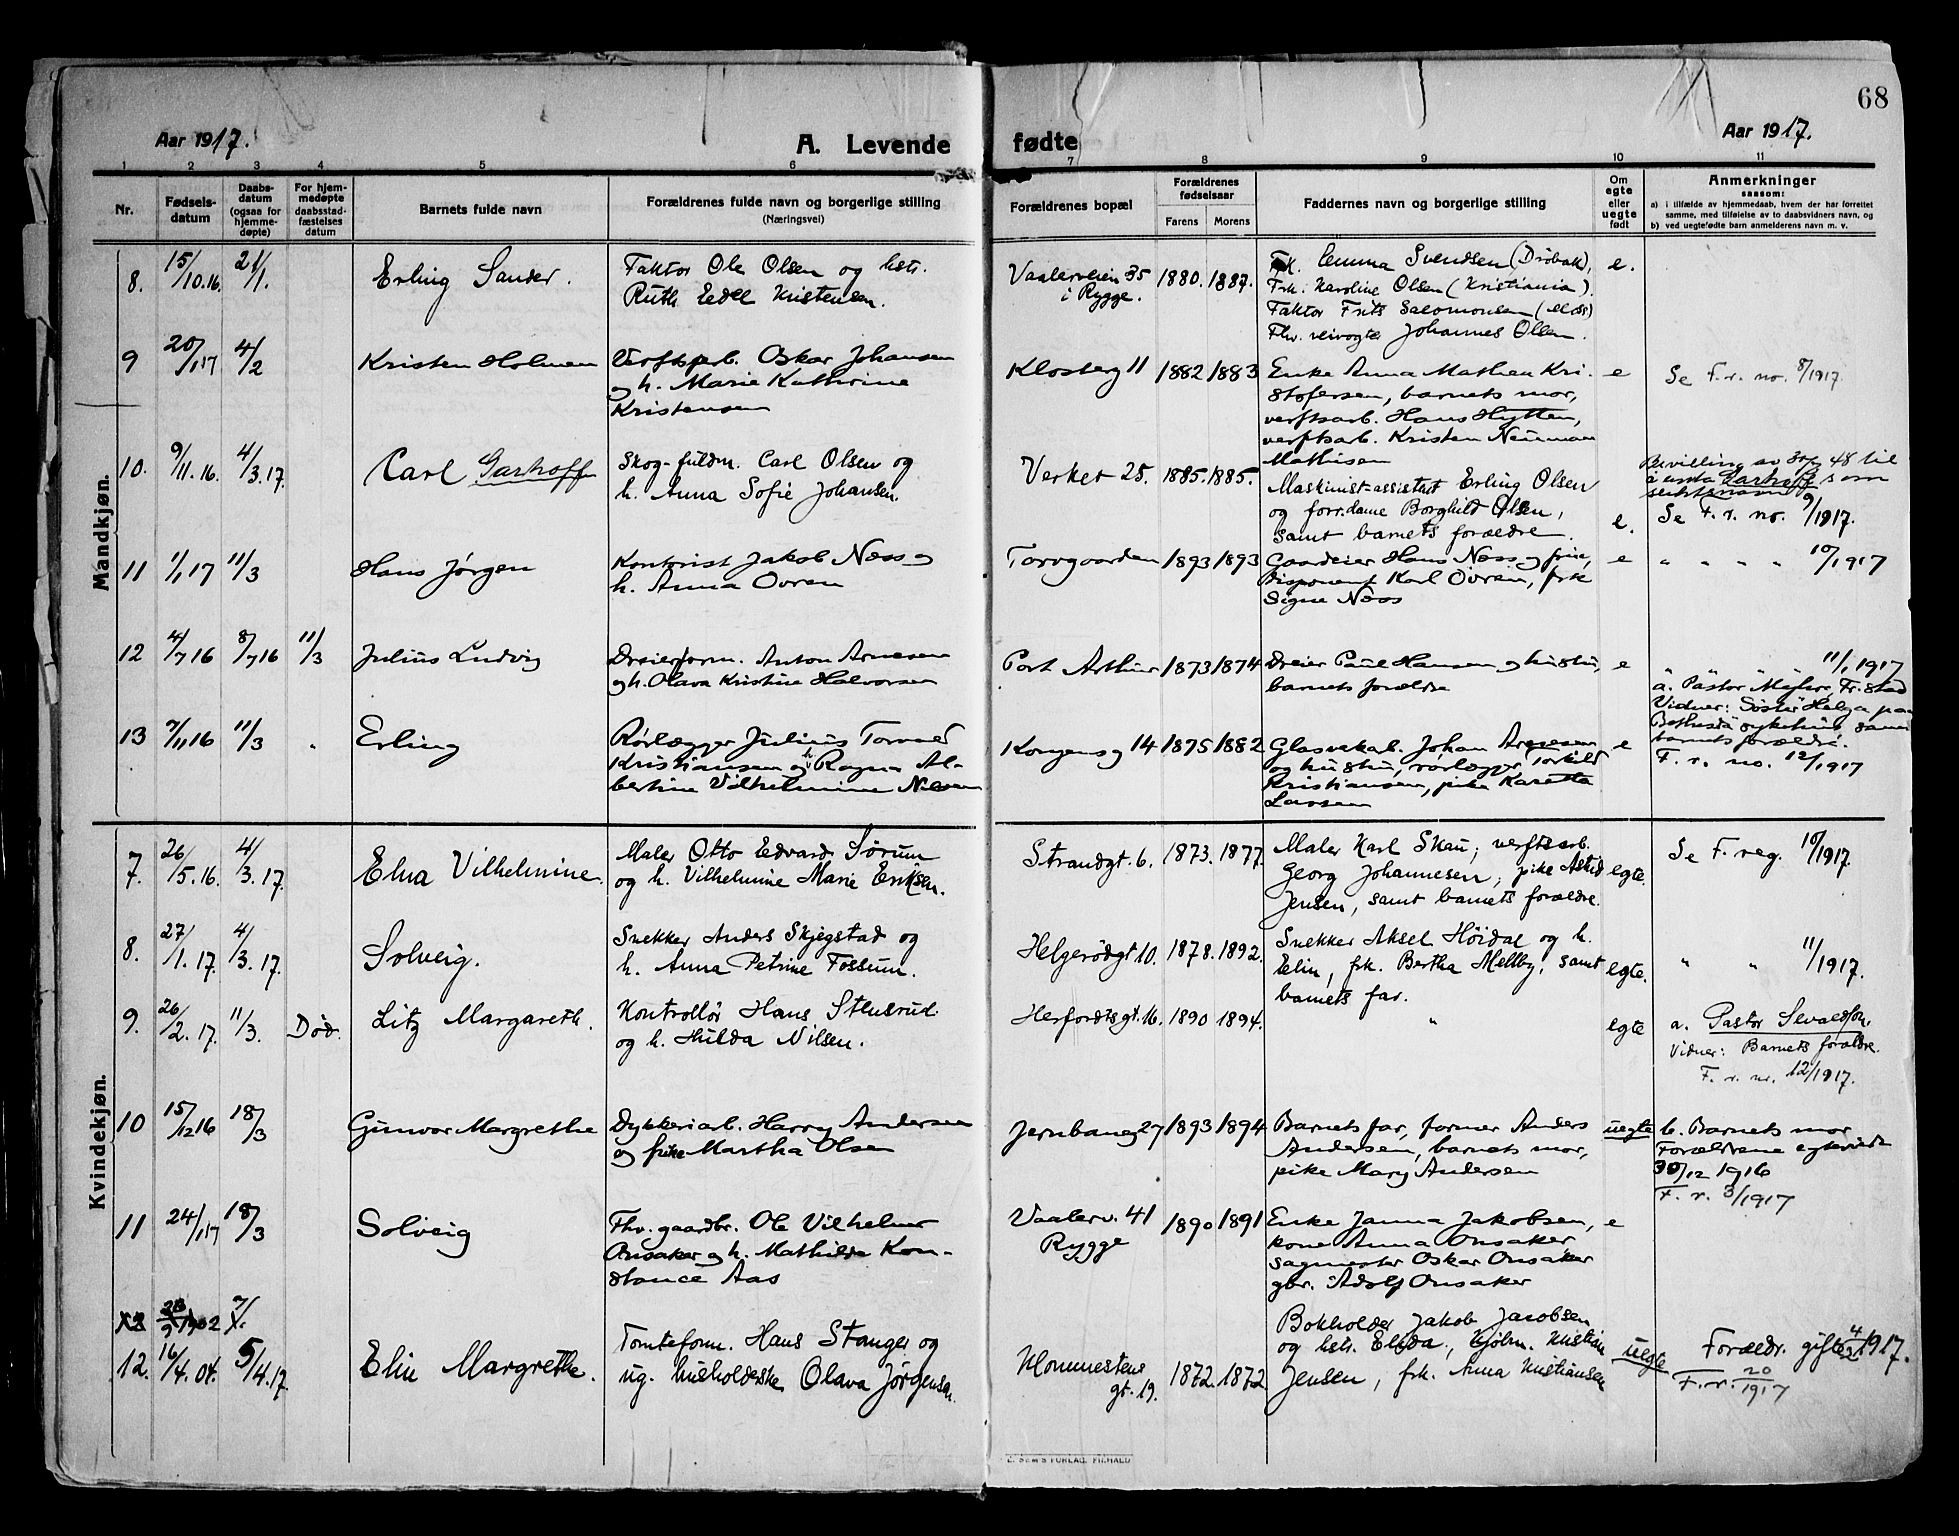 68
Aar 1917.
A. Levende fødte
Aar 1917.
1 2 3 4 5 6 7 8 9 10 11
Nr.
Fødsels-
datum
Daabs-
datum
(ogsaa for
hjemme-
døpte)
For hjem-
medøpte
daabsstad-
fæstelses
datum
Barnets fulde navn
Forældrenes fulde navn og borgerlige stilling
(Næringsvei)
Forældrenes bopæl
Forældrenes
fødselsaar
Farens Morens
Faddernes navn og borgerlige stilling
Om
egte
eller
uegte
født
Anmerkninger
saasom:
a) i tilfælde av hjemmedaab, hvem der har forrettet
samme, med tilføielse av to daabsvidners navn, og
b) ved uegtefødte barn anmelderens navn m. v.
Mandkjøn.
8. 15/10.16. 21/1. Erling Sander.
Faktor Ole Olsen og hstr.
Ruth Edel Kristensen.
Vaalerveien 35
i Rygge.
1880. 1887.
Frk. Emma Svendsen (Dröbak),
Frk. Karoline Olsen (Kristiania).
Faktor Frits Salomonsen (Moss)
Fhv. veivogter Johannes Olsen.
e.
9 20/1 17 4/2 Kristen Holmen
Verftsarb. Oskar Johansen
og h. Marie Kathrine
Kristensen
Klosterg 11 1882 1883
Enke Anna Mathea Kri-
stofersen, barnets mor,
verftsarb. Hans Hytten,
verftsarb. Kristen Neuman
Mathisen
e
Se F. r. no. 8/1917.
10. 9/11.16. 4/3.17. Carl Garhoff
Skog-fuldm. Carl Olsen og
h. Anna Sofie Johansen.
Verket 25. 1885. 1885.
Maskinist-assistent Erling Olsen
og forr.dame Borghild Olsen,
samt barnets forældre.
e.
Bevilling av 48 til
å anta Garhoff som
slektsnavn
Se F. r. no. 9/1917.
11 1/1 17 11/3 Hans Jørgen
Kontorist Jakob Næss og
h. Anna Ovren
Torvgaarden 1893 1893
Gaardeier Hans Næss og frue,
Disponent Karl Ovren, frk
Signe Næss
e
" " " " 10/1917
12 4/7 16 8/7 16 11/3 Julius Ludvig
Dreierform. Anton Arnesen
og h. Olava Kristine Halvorsen
Port Arthur 1873 1874
Dreier Paul Hansen og hustru,
barnets forældre
e
" " " 11/1917
a. Pastor Fr.stad
Vidner: Søster Helga paa
Bethesda sykehus samt
barnets forældre.
13 7/11 16 11/3 . Erling
Rørlægger Julius Torvald
Kristiansen og h. Ragna Al-
bertine Vilhelmine Nilsen
Kongensg 14 1875 1882
Glasverkarb. Johan Arnesen
og hustru, rørlægger Torkild
Kristiansen, pike Karetta
Larsen
e
F. r. no. 12/1917
Kvindekjøn.
7. 26/5.16. 4/3.17. Elna Vilhelmine.
Maler Otto Edvard Sørum
og h. Vilhelmine Marie Eriksen.
Strandgt. 6. 1873. 1877.
Maler Karl Skau, verftsarb.
Georg Johannesen, pike Astrid
Jensen, samt barnets forældre.
egte.
Se F. reg. 10/1917.
8. 27/1.17. 4/3.17. Solveig.
Snekker Anders Skjegstad og
h. Anna Petrine Fossum.
Helgerödgt 10. 1878. 1892.
Snekker Aksel Höidal og h.
Elin, frk. Bertha Mellby, samt
barnets far.
egte.
" " 11/1917.
9. 26/2.17. 11/3. Död. Litz Margareth.
Kontrollör Hans Stusrud
og h. Hulda Nilsen.
Herfordtsgt. 16. 1890 1894.
"
egte
a. Pastor Sevaldson.
Vidner: Barnets forældre.
F. r. nr. 12/1917.
10 15/12 16 18/3 Gunvor Margrethe
Dykkeriarb. Harry Andersen
og pike Martha Olsen
Jernbaneg 27 1893 1894
Barnets far, former Anders
Andersen, barnets mor,
pike Mary Andersen
uegte
b. Barnets mor
Forældrene egteviede
30/12 1916
F. r. 3/1917
11 24/1 17 18/3 Solveig
Fhv. gaardbr. Ole Vilhelm
Onsaker og h. Mathilde Kon-
stance Aas
Vaalerv. 41
Rygge
1890 1891
Enke Janna Jakobsen,
kone Anna Onsaker
sagmester Oskar Onsaker
gbr. Adolf Onsaker
e
12. 16/4.04. 5/4.17. Elin Margrethe.
Tomteform. Hans Stanger og
ug. husholderske Olava Jørgensen.
Kommestens
gt. 19.
1872. 1872
Bokholder Jakob Jacobsen
og hstr. Elida, Kjölm. Kristian
Jensen, frk. Anna Kristiansen
uegte
Forældr. gifte 4/2 1917.
F. r. 20/1917
E. SEM'S FORLAG, FR.HALD